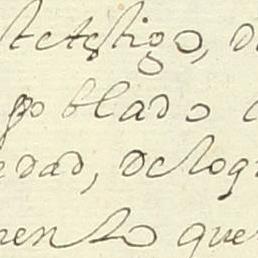 te testigo, d
poblado
edad, delog
mento que